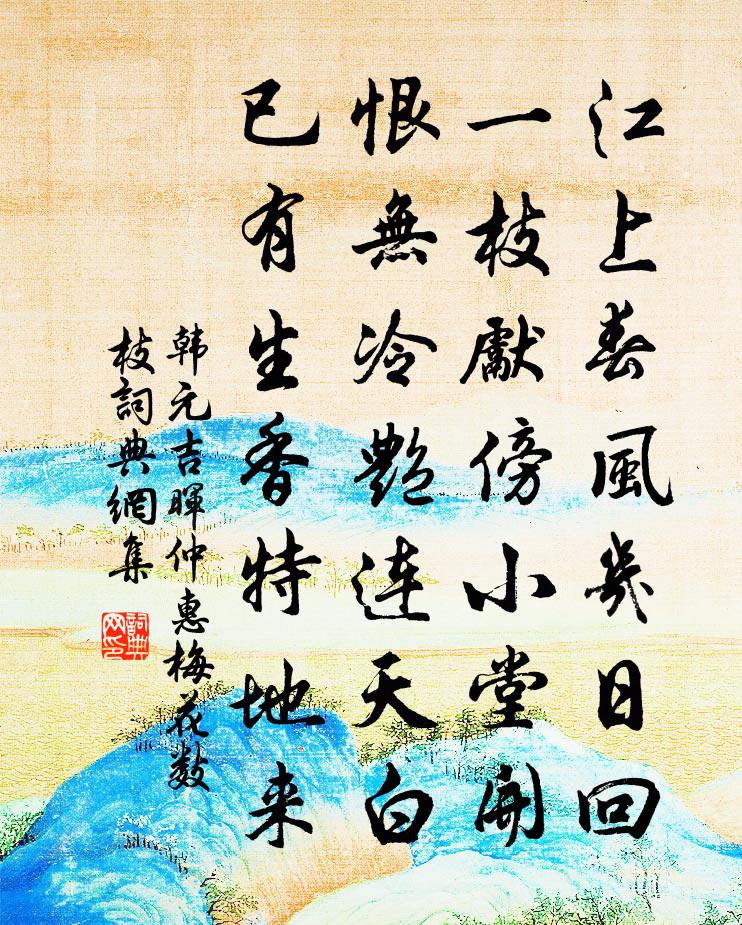 江上春風幾日回
一枝獻傍小堂開
恨無冷艷连天白
已有生香特地来
韩元吉暉仲惠梅花数
枝詞典網集
詞典
网印